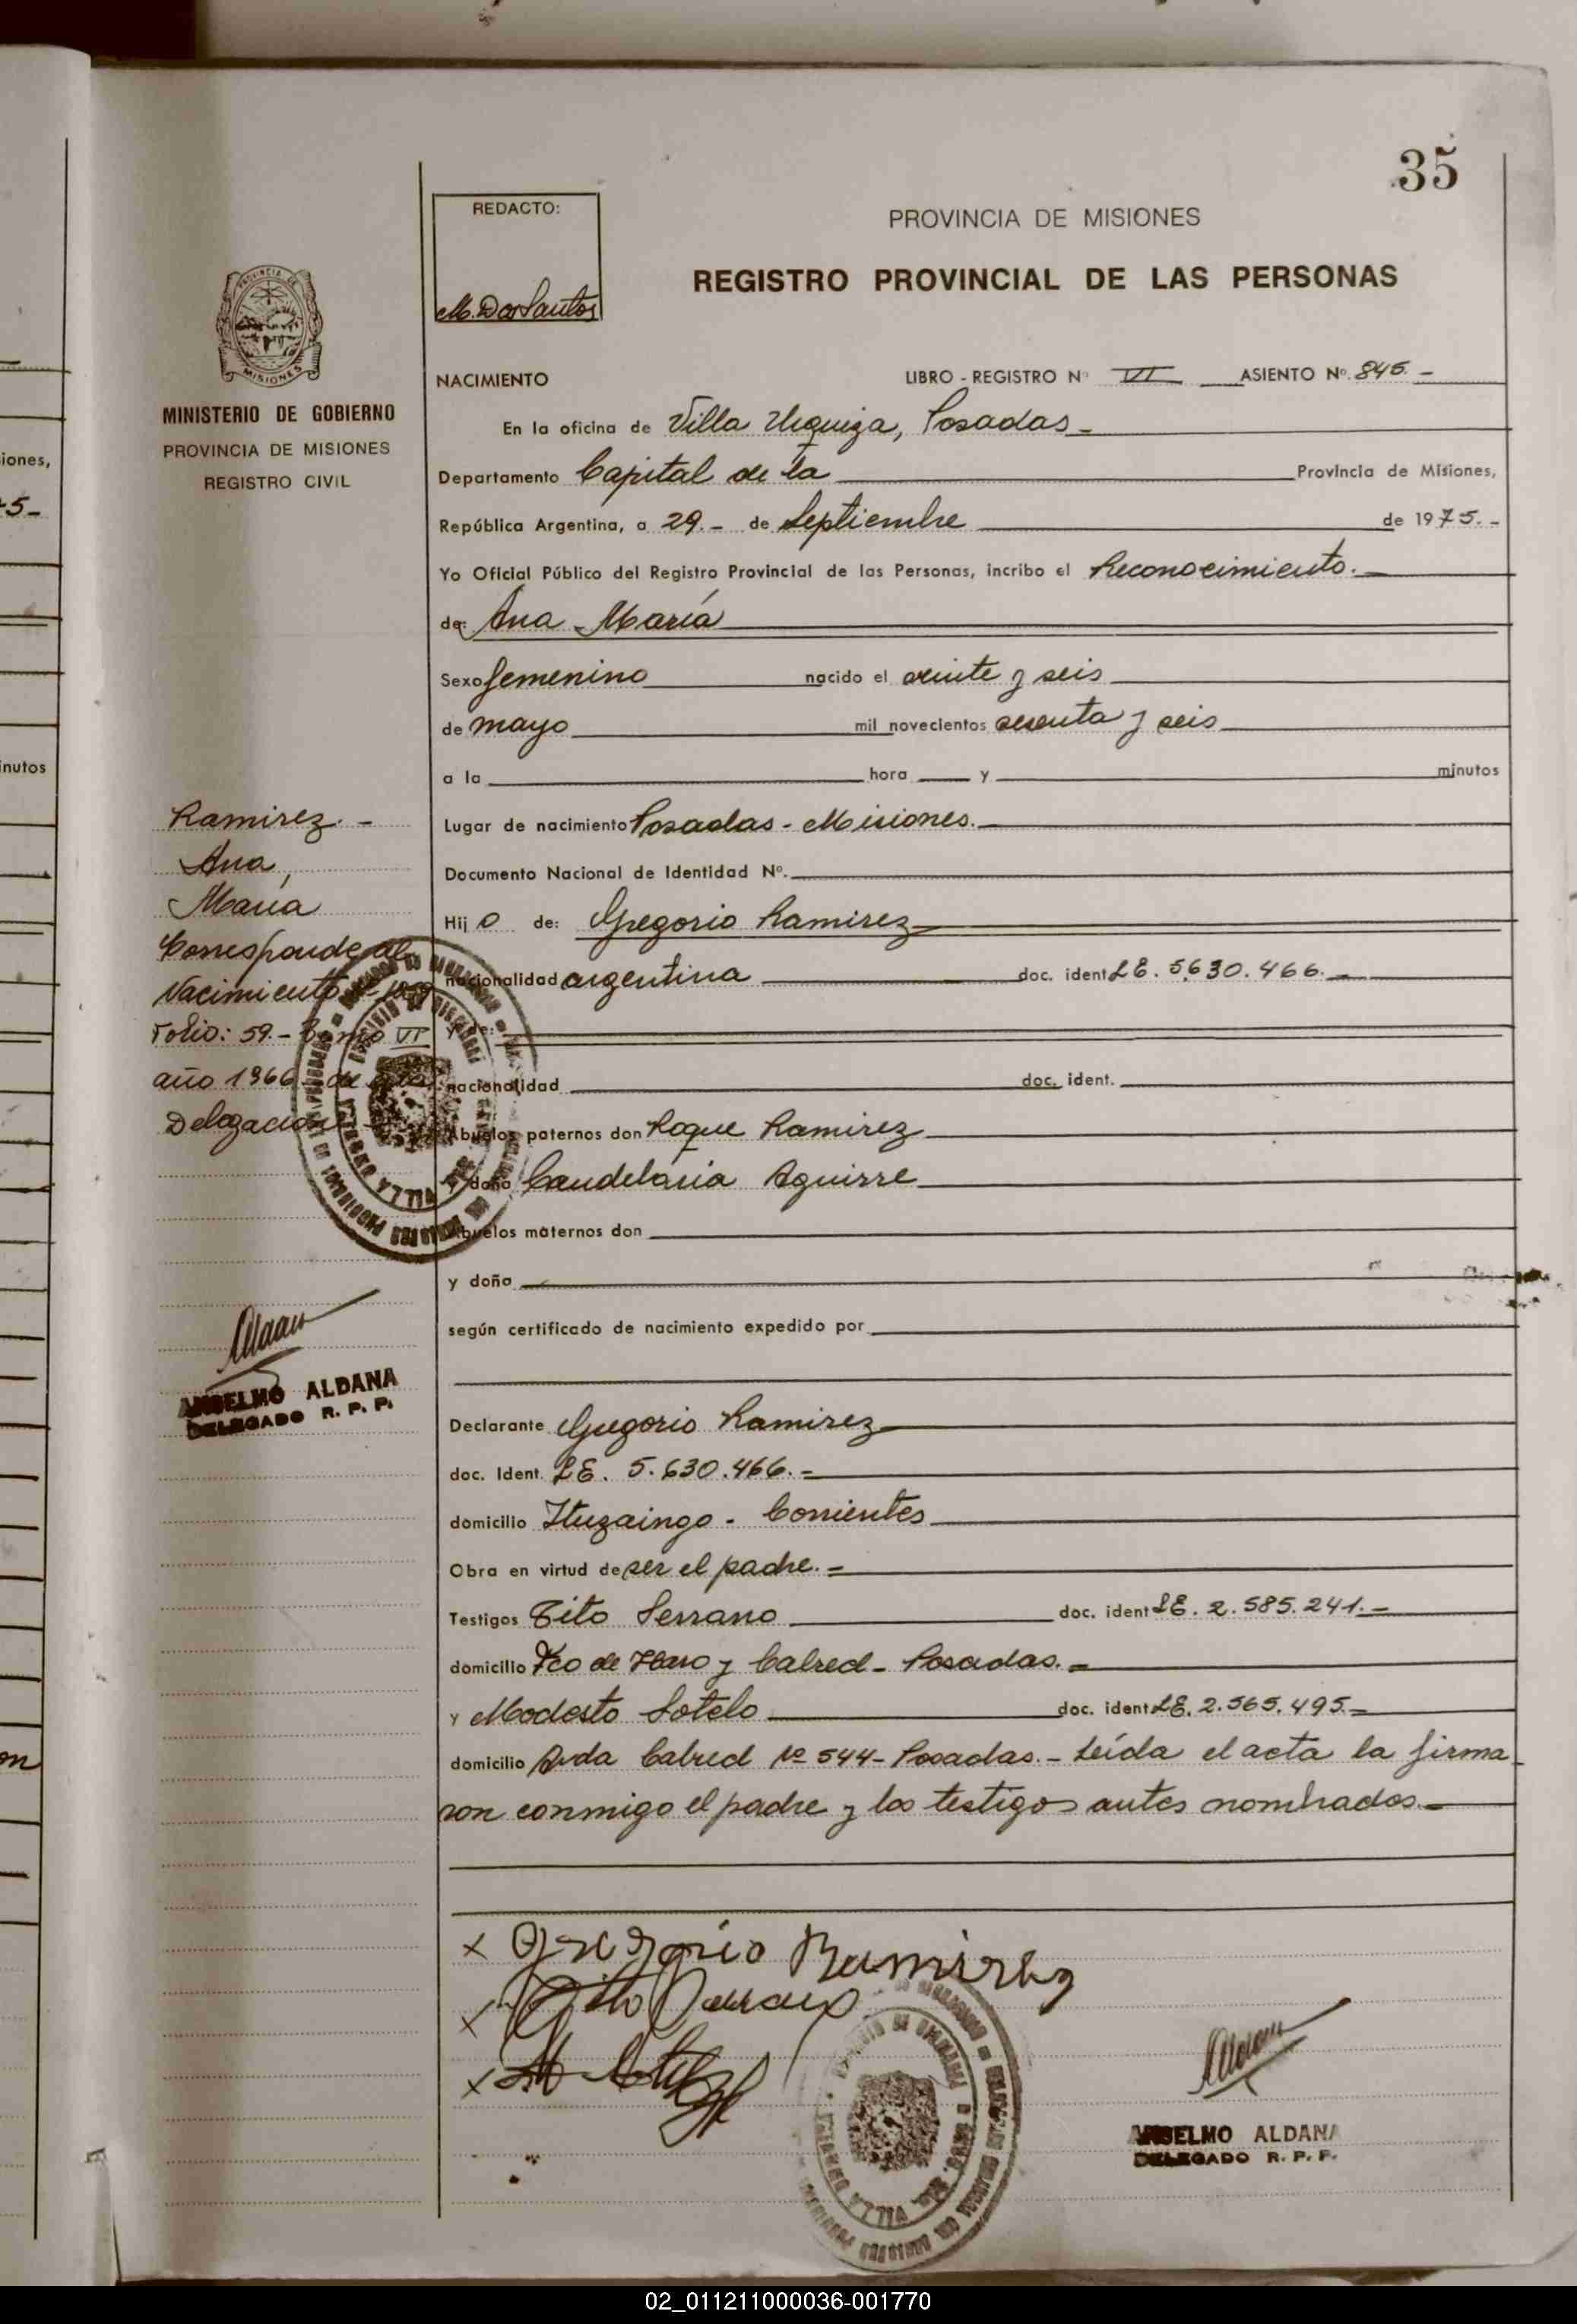 35
REDACTO:
M. Dos Santos
PROVINCIA DE MISIONES
REGISTRO PROVINCIAL DE LAS PERSONAS
PROVINCIA DE
MISIONES
MINISTERIO DE GOBIERNO
PROVINCIA DE MISIONES
REGISTRO CIVIL
NACIMIENTO LIBRO - REGISTRO Nº VI ASIENTO Nº 845.-
En la oficina de Villa Urquiza, Posadas.-
Departamento Capital de la Provincia de Misiones,
República Argentina, a 29.- de Septiembre de 1975.-
Yo Oficial Público del Registro Provincial de las Personas, incribo el Reconocimiento.-
de: Ana María
Sexo femenino nacido el veinte y seis
de mayo mil novecientos sesenta y seis
a la hora y minutos
Lugar de nacimiento Posadas - Misiones.-
Documento Nacional de Identidad Nº.
Hij o de: Gregorio Ramirez
nacionalidad argentina doc. ident LE. 5.630.466.-
y de:
nacionalidad doc. ident.
Abuelos paternos don Roque Ramirez
y doña Candelaria Aguirre
Abuelos maternos don
y doña
según certificado de nacimiento expedido por
Declarante Gregorio Ramirez
doc. Ident. LE. 5.630.466.-
domicilio Ituzaingo - Corrientes
Obra en virtud de ser el padre.-
Testigos Tito Serrano doc. ident LE. 2.585.241.-
domicilio Fco de Haro y Cabred - Posadas.-
y Modesto Sotelo doc. ident LE. 2.565.495.-
domicilio Avda Cabred Nº 544 - Posadas.- Leída el acta la firma
ron conmigo el padre y los testigos antes nombrados.-
Ramirez.-
Ana,
María
Corresponde al
Nacimiento
Folio: 59.- Tomo VI
año 1966 de esta
Delegación
ANSELMO ALDANA
DELEGADO R. P. P.
x Gregorio Ramirez
x Tito Serrano
x M Sotelo
VILLA URQUIZA
ANSELMO ALDANA
DELEGADO R. P. P.
iones,
75-
inutos
on
02_011211000036-001770